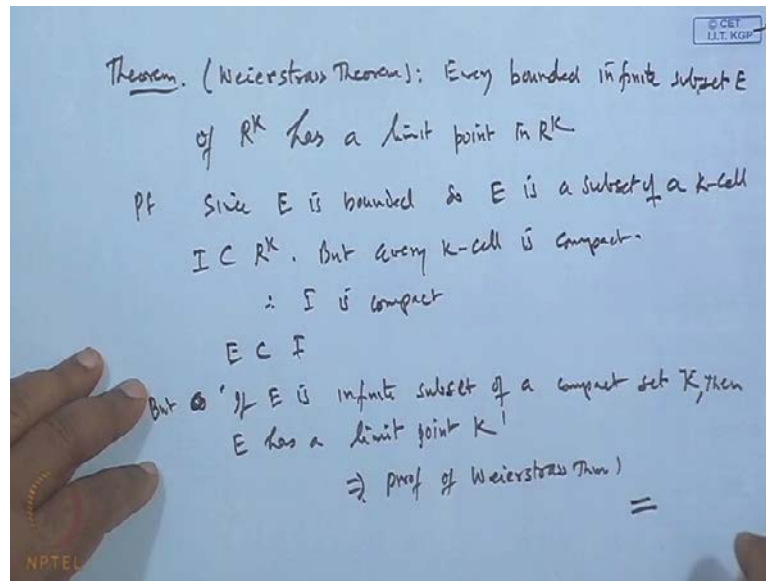 © CET
I.I.T. KGP
Theorem. (Weierstrass Theorem): Every bounded infinite subset E
of R^K has a limit point in R^K
Pf Since E is bounded so E is a subset of a K-cell
I ⊂ R^K. But every K-cell is compact.
∴ I is compact
E ⊂ I
But 'If E is infinite subset of a compact set K, then
E has a limit point K'
⇒ proof of Weierstrass Thm)
NPTEL